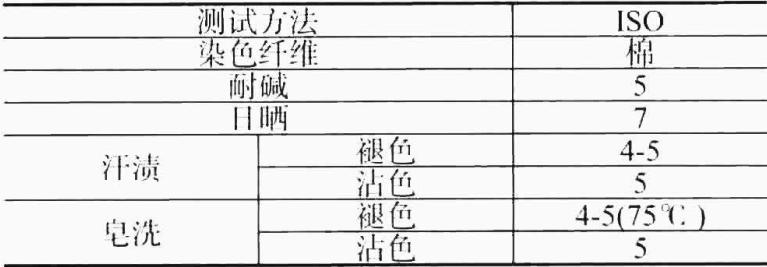 测试方法 ISO
染色纤维 棉
耐碱 5
日晒 7
汗渍 褪色 4-5
沾色 5
皂洗 褪色 4-5(75℃)
沾色 5